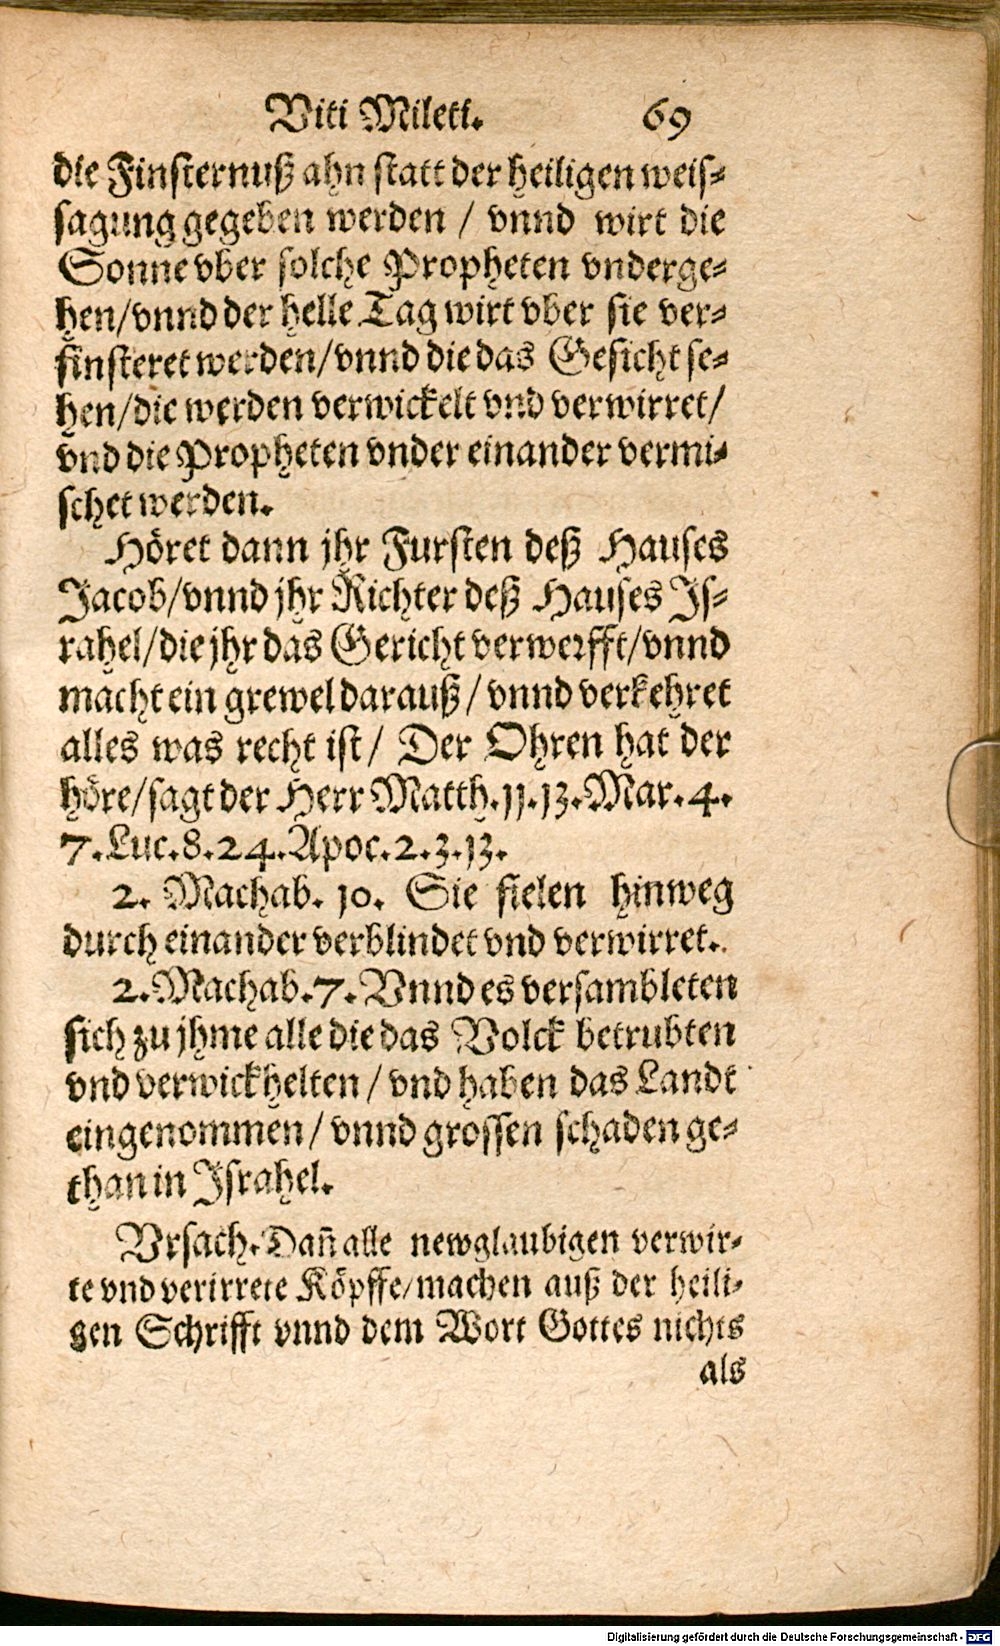 Viti Mileti. 69
die Finsternuß ahn statt der heiligen weis-
sagung gegeben werden / vnnd wirt die
Sonne vber solche Propheten vnderge-
hen/vnnd der helle Tag wirt vber sie ver-
finsteret werden/vnnd die das Gesicht se-
hen/die werden verwickelt vnd verwirret/
vnd die Propheten vnder einander vermi-
schet werden.
Höret dann jhr Fursten deß Hauses
Jacob/vnnd jhr Richter deß Hauses Js-
rahel/die jhr das Gericht verwerfft/vnnd
macht ein grewel darauß/ vnnd verkehret
alles was recht ist/ Der Ohren hat der
höre/sagt der Herr Matth.11.13.Mar.4.
7.Luc.8.24.Apoc.2.3.13.
2. Machab. 10. Sie fielen hinweg
durch einander verblindet vnd verwirret.
2.Machab.7.Vnnd es versambleten
sich zu jhme alle die das Volck betrubten
vnd verwickhelten / vnd haben das Landt
eingenommen/ vnnd grossen schaden ge-
than in Jsrahel.
Vrsach. Dañ alle newglaubigen verwir-
te vnd verirrete Köpffe/machen auß der heili-
gen Schrifft vnnd dem Wort Gottes nichts
als
Digitalisierung gefördert durch die Deutsche Forschungsgemeinschaft - DFG